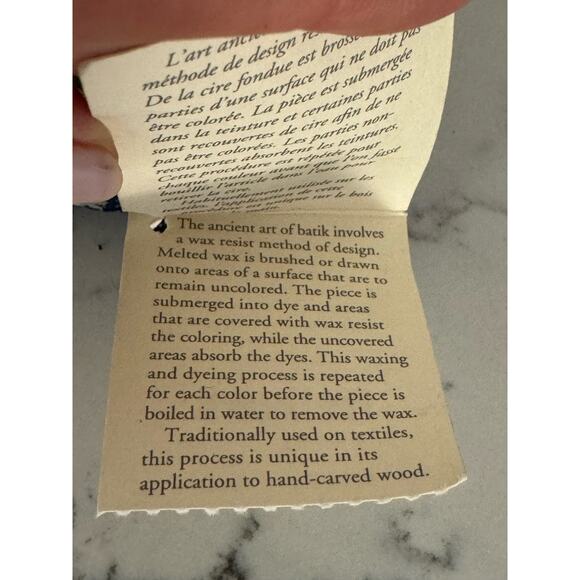 L'art ancie
méthode de design res
De la cire fondue est brosse
parties d'une surface qui ne doit pas
être colorée. La pièce est submergée
dans la teinture et certaines parties
sont recouvertes de cire afin de ne
pas être colorées. Les parties non-
recouvertes absorbent les teintures.
Cette procédure est répétée pour
chaque couleur avant que l'on fasse
bouillir l'article dans l'eau pour
retirer la cire.
Habituellement utilisée sur les
textiles, l'application de cette
procédure est unique sur le bois
The ancient art of batik involves
a wax resist method of design.
Melted wax is brushed or drawn
onto areas of a surface that are to
remain uncolored. The piece is
submerged into dye and areas
that are covered with wax resist
the coloring, while the uncovered
areas absorb the dyes. This waxing
and dyeing process is repeated
for each color before the piece is
boiled in water to remove the wax.
Traditionally used on textiles,
this process is unique in its
application to hand-carved wood.